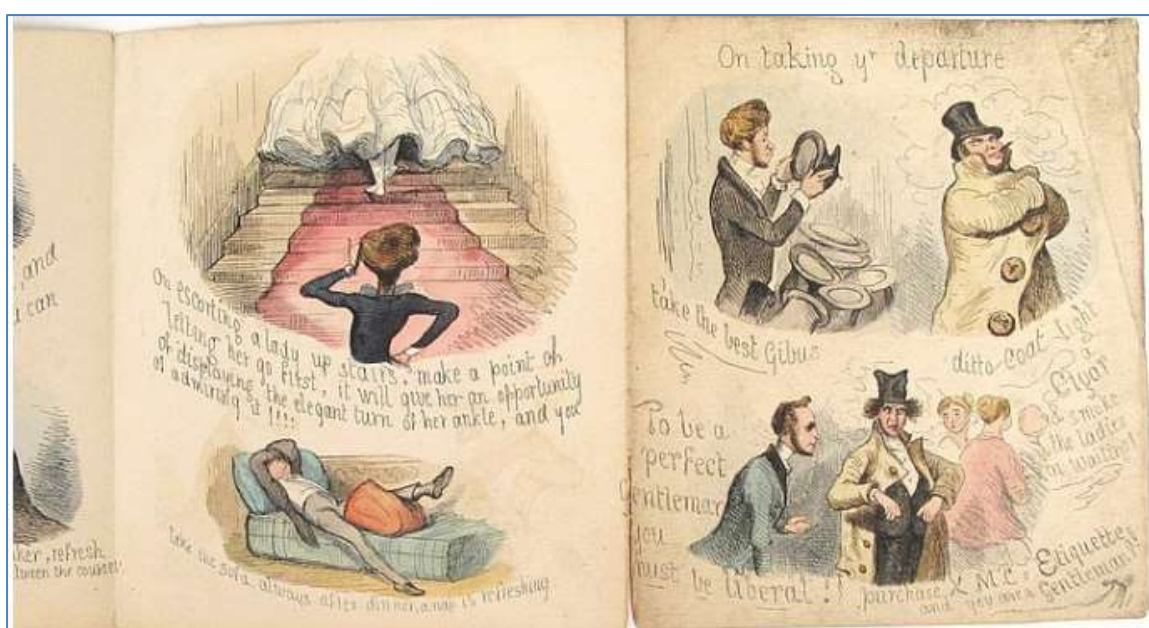 , and
u can
ker, refresh
tween the courses!
On escorting a lady up stairs, make a point of
letting her go first, it will give her an opportunity
of displaying the elegant turn of her ankle, and you
of admiring it !!!!
take the sofa, always after dinner, a nap is refreshing
On taking yr departure
take the best Gibus
ditto coat light
a
Cigar
& smoke
the ladies
in waiting!
To be a
perfect
Gentleman
you
must be liberal !!
purchase X M C's Etiquette!
and you are a Gentleman!!